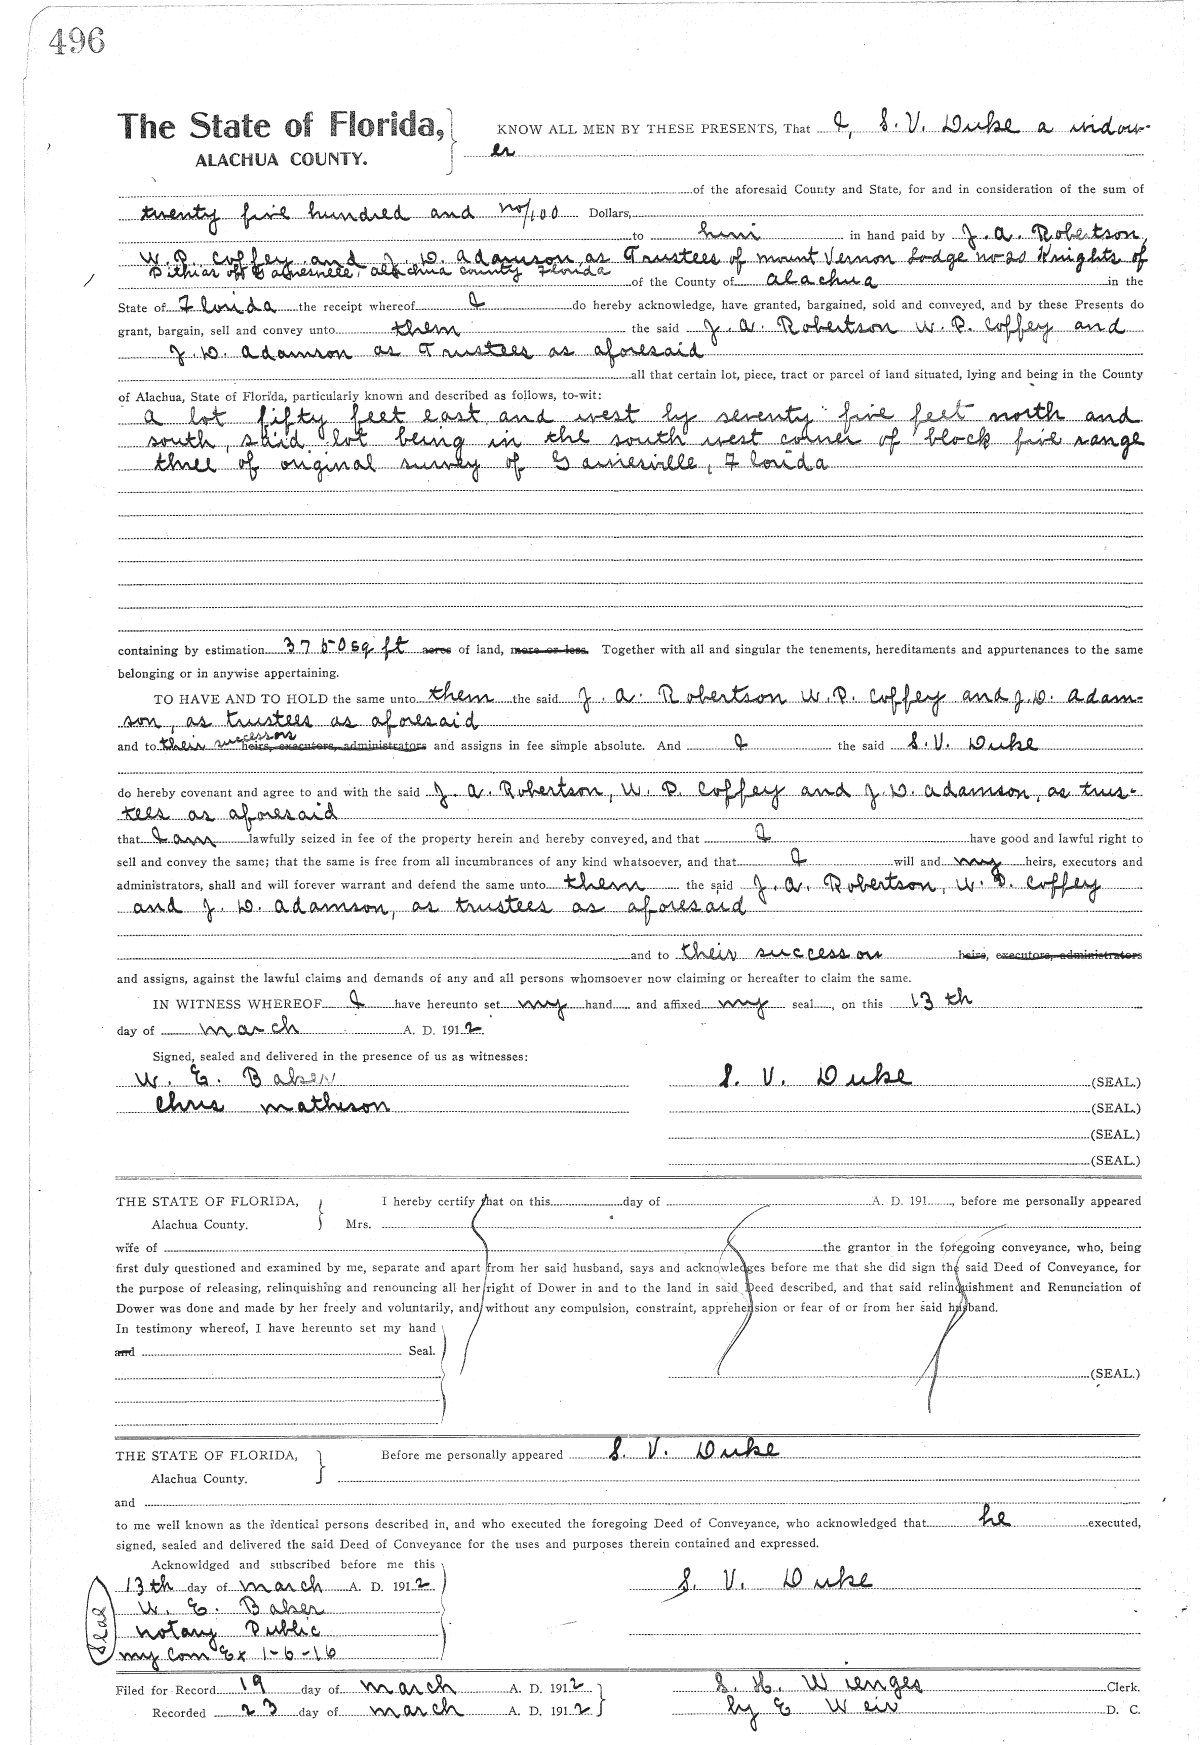 496
The State of Florida, KNOW ALL MEN BY THESE PRESENTS, That I, S. V. Duke a widow-
ALACHUA COUNTY. er
of the aforesaid County and State, for and in consideration of the sum of
twenty five hundred and no/100 Dollars,
to him in hand paid by J. A. Robertson,
W. P. Coffey and J. D. Adamson, as Trustees of Mount Vernon Lodge no 20 Knights of
Pithias off Gainesville, Alachua County Florida of the County of Alachua in the
State of Florida the receipt whereof I do hereby acknowledge, have granted, bargained, sold and conveyed, and by these Presents do
grant, bargain, sell and convey unto them the said J. A. Robertson W. P. Coffey and
J. D. Adamson as Trustees as aforesaid
all that certain lot, piece, tract or parcel of land situated, lying and being in the County
of Alachua, State of Florida, particularly known and described as follows, to-wit:
A lot fifty feet east and west by seventy five feet north and
south, said lot being in the south west corner of block five range
three of original survey of Gainesville, Florida
containing by estimation 3750 sq ft acres of land, more or less. Together with all and singular the tenements, hereditaments and appurtenances to the same
belonging or in anywise appertaining.
TO HAVE AND TO HOLD the same unto them the said J. A. Robertson W. P. Coffey and J. D. Adam-
son, as trustees as aforesaid
and to their successors heirs, executors, administrators and assigns in fee simple absolute. And I the said S. V. Duke
do hereby covenant and agree to and with the said J. A. Robertson, W. P. Coffey and J. D. Adamson, as trus-
tees as aforesaid
that I am lawfully seized in fee of the property herein and hereby conveyed, and that I have good and lawful right to
sell and convey the same; that the same is free from all incumbrances of any kind whatsoever, and that I will and my heirs, executors and
administrators, shall and will forever warrant and defend the same unto them the said J. A. Robertson, W. P. Coffey
and J. D. Adamson, as trustees as aforesaid
and to their successors heirs, executors, administrators
and assigns, against the lawful claims and demands of any and all persons whomsoever now claiming or hereafter to claim the same.
IN WITNESS WHEREOF I have hereunto set my hand and affixed my seal, on this 13th
day of March A. D. 1912.
Signed, sealed and delivered in the presence of us as witnesses:
W. E. Baker S. V. Duke (SEAL.)
Chris Matheson (SEAL.)
(SEAL.)
(SEAL.)
THE STATE OF FLORIDA, I hereby certify that on this day of A. D. 191 , before me personally appeared
Alachua County. Mrs.
wife of the grantor in the foregoing conveyance, who, being
first duly questioned and examined by me, separate and apart from her said husband, says and acknowledges before me that she did sign the said Deed of Conveyance, for
the purpose of releasing, relinquishing and renouncing all her right of Dower in and to the land in said Deed described, and that said relinquishment and Renunciation of
Dower was done and made by her freely and voluntarily, and without any compulsion, constraint, apprehension or fear of or from her said husband.
In testimony whereof, I have hereunto set my hand
and Seal.
(SEAL.)
THE STATE OF FLORIDA, Before me personally appeared S. V. Duke
Alachua County.
and
to me well known as the identical persons described in, and who executed the foregoing Deed of Conveyance, who acknowledged that he executed,
signed, sealed and delivered the said Deed of Conveyance for the uses and purposes therein contained and expressed.
Acknowldged and subscribed before me this
13th day of March A. D. 1912 S. V. Duke
W. E. Baker
Notary Public
my Com Ex 1-6-16
Seal
Filed for Record 19 day of March A. D. 1912 S. H. Wienges Clerk.
Recorded 23 day of March A. D. 1912 by E Weir D. C.